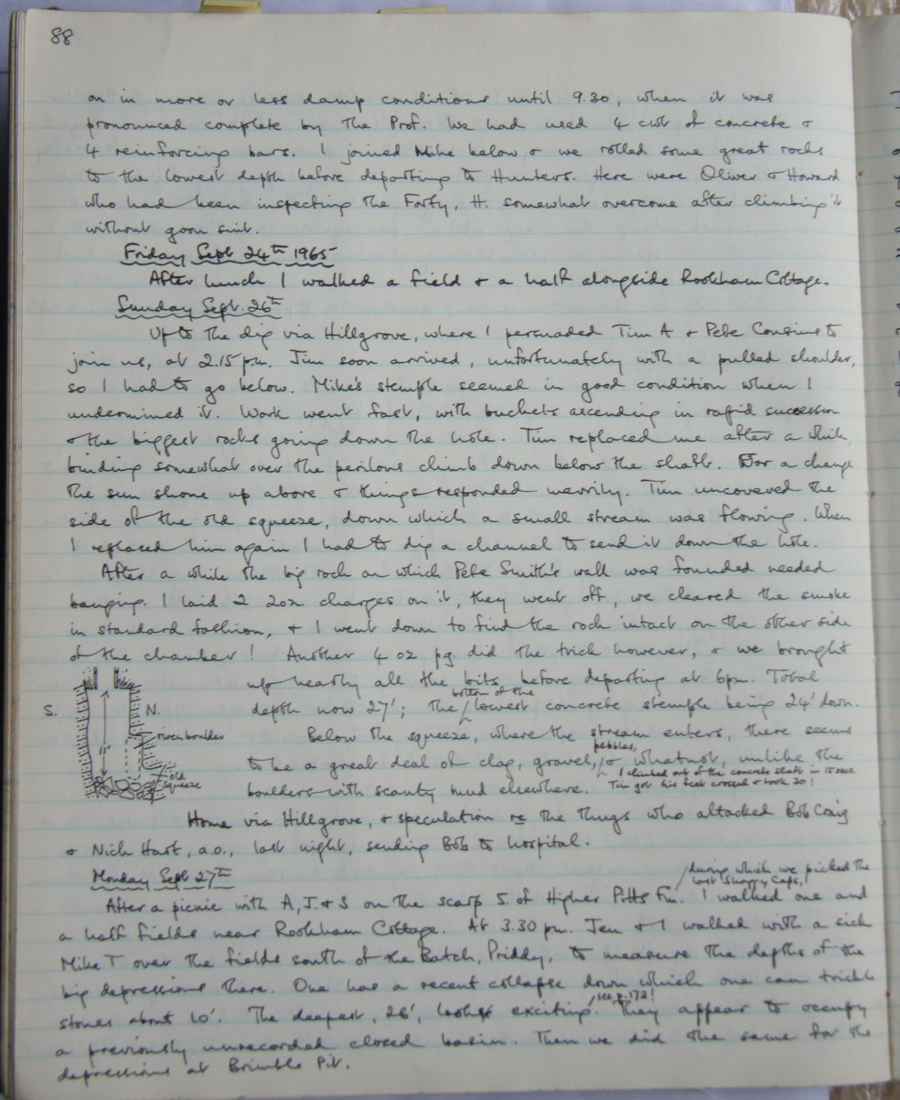 88
on in more or less damp conditions until 9.30, when it was
pronounced complete by the Prof. We had used 4 cwt of concrete &
4 reinforcing bars. I joined Mike below & we rolled some great rocks
to the lowest depth before departing to Hunters. Here were Oliver & Howard
who had been inspecting the Forty, H. somewhat overcome after climbing it
without goon suit.
Friday Sept 24th 1965
After lunch I walked a field & a half alongside Rookham Cottage.
Sunday Sept. 26th
Up to the dig via Hillgrove, where I persuaded Tim A & Pete Cousins to
join us, at 2.15 p.m. Jim soon arrived, unfortunately with a pulled shoulder,
so I had to go below. Mike's stemple seemed in good condition when I
undermined it. Work went fast, with buckets ascending in rapid succession
& the biggest rocks going down the hole. Tim replaced me after a while,
binding somewhat over the perilous climb down below the shaft. For a change
the sun shone up above & things responded merrily. Tim uncovered the
side of the old squeeze, down which a small stream was flowing. When
I replaced him again I had to dig a channel to send it down the hole.
After a while the big rock on which Pete Smith's wall was founded needed
banging. I laid 2 2oz charges on it, they went off, we cleared the smoke
in standard fashion, & I went down to find the rock intact on the other side
of the chamber! Another 4 oz pg did the trick however, & we brought
up nearly all the bits before departing at 6pm. Total
depth now 27'; the bottom of the lowest concrete stemple being 24' down.
S.
N.
11'
riven boulder
old
squeeze
Below the squeeze, where the stream enters, there seems
to be a great deal of clay, gravel, pebbles, & whatnot, unlike the
boulders with scanty mud elsewhere. I climbed out of the concrete shaft in 15 secs
Tim got his feet crossed & took 20!
Home via Hillgrove, & speculation re the thugs who attacked Bob Craig
& Nich Hart, a.o., last night, sending Bob to hospital.
Monday Sept 27th
After a picnic with A, J & S on the scarp S. of Higher Pitts Fm. / during which we picked the
last Shaggy Caps, / I walked one and
a half fields near Rookham Cottage. At 3.30 pm. Jen & I walked with a sick
Mike T over the fields south of the Batch, Priddy, to measure the depths of the
big depressions there. One has a recent collapse down which one can trickle
stones about 10'. The deepest, 26', looks exciting. see p. 172! They appear to occupy
a previously unrecorded closed basin. Then we did the same for the
depressions at Brimble Pit.